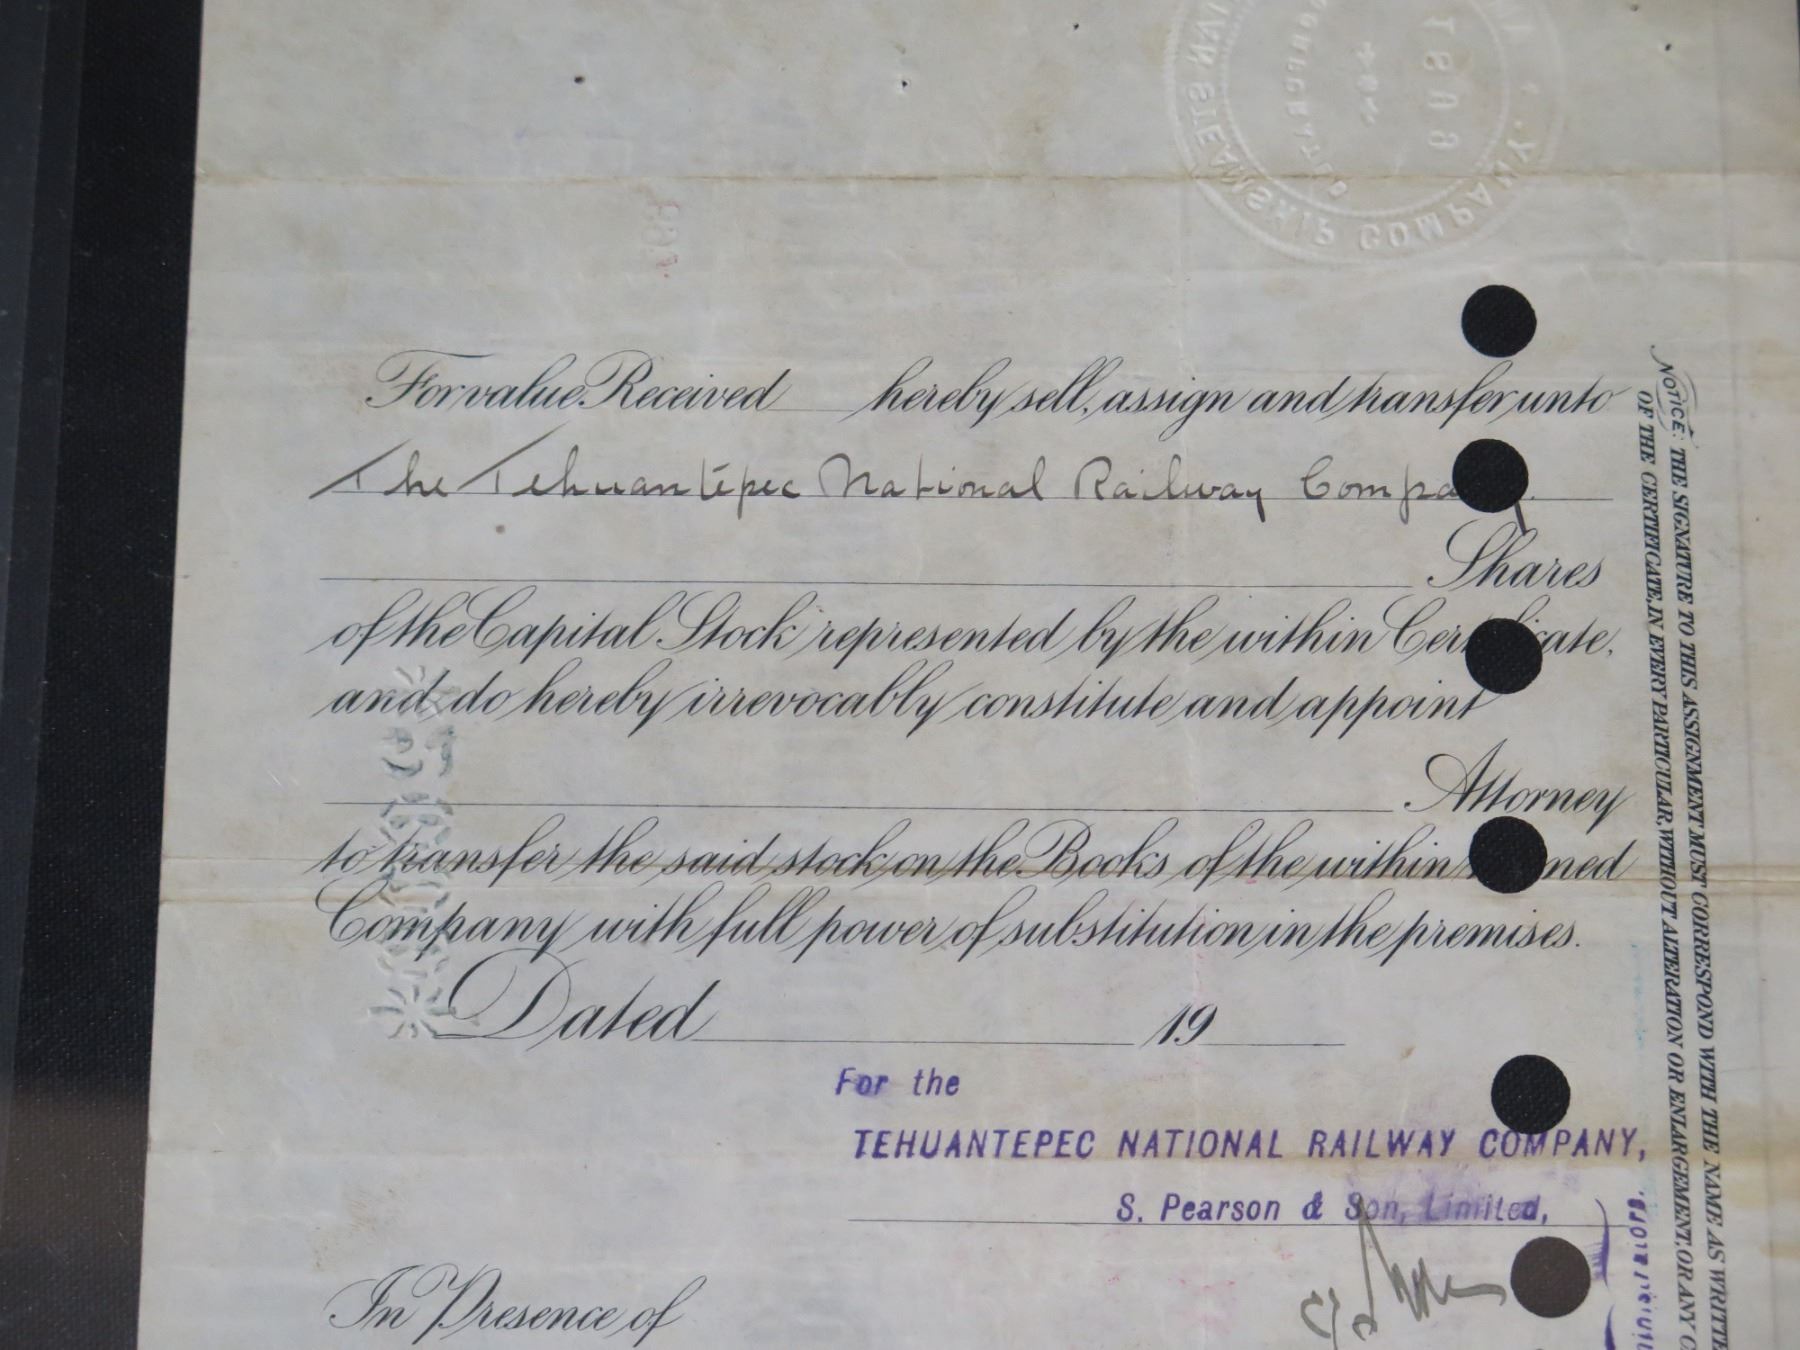 STEAMSHIP COMPANY.
1909
For value Received hereby sell, assign and transfer unto
The Tehuantepec National Railway Company.
Shares
of the Capital Stock represented by the within Certificate,
and do hereby irrevocably constitute and appoint
Attorney
to transfer the said stock on the Books of the within named
Company with full power of substitution in the premises.
Dated 19
For the
TEHUANTEPEC NATIONAL RAILWAY COMPANY,
S. Pearson & Son, Limited,
In Presence of
NOTICE: THE SIGNATURE TO THIS ASSIGNMENT MUST CORRESPOND WITH THE NAME AS WRITTEN
OF THE CERTIFICATE, IN EVERY PARTICULAR, WITHOUT ALTERATION OR ENLARGEMENT, OR ANY